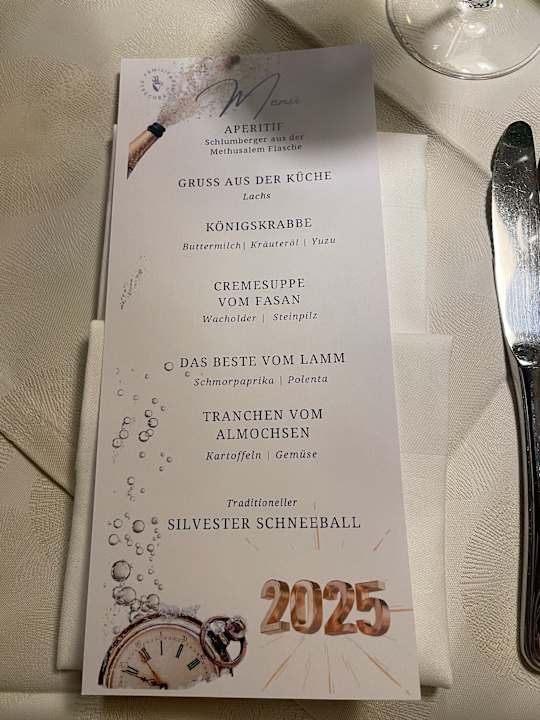 Menü
APERITIF
Schlumberger aus der
Methusalem Flasche
GRUSS AUS DER KÜCHE
Lachs
KÖNIGSKRABBE
Buttermilch| Kräuteröl | Yuzu
CREMESUPPE
VOM FASAN
Wacholder | Steinpilz
DAS BESTE VOM LAMM
Schmorpaprika | Polenta
TRANCHEN VOM
ALMOCHSEN
Kartoffeln | Gemüse
Traditioneller
SILVESTER SCHNEEBALL
2025